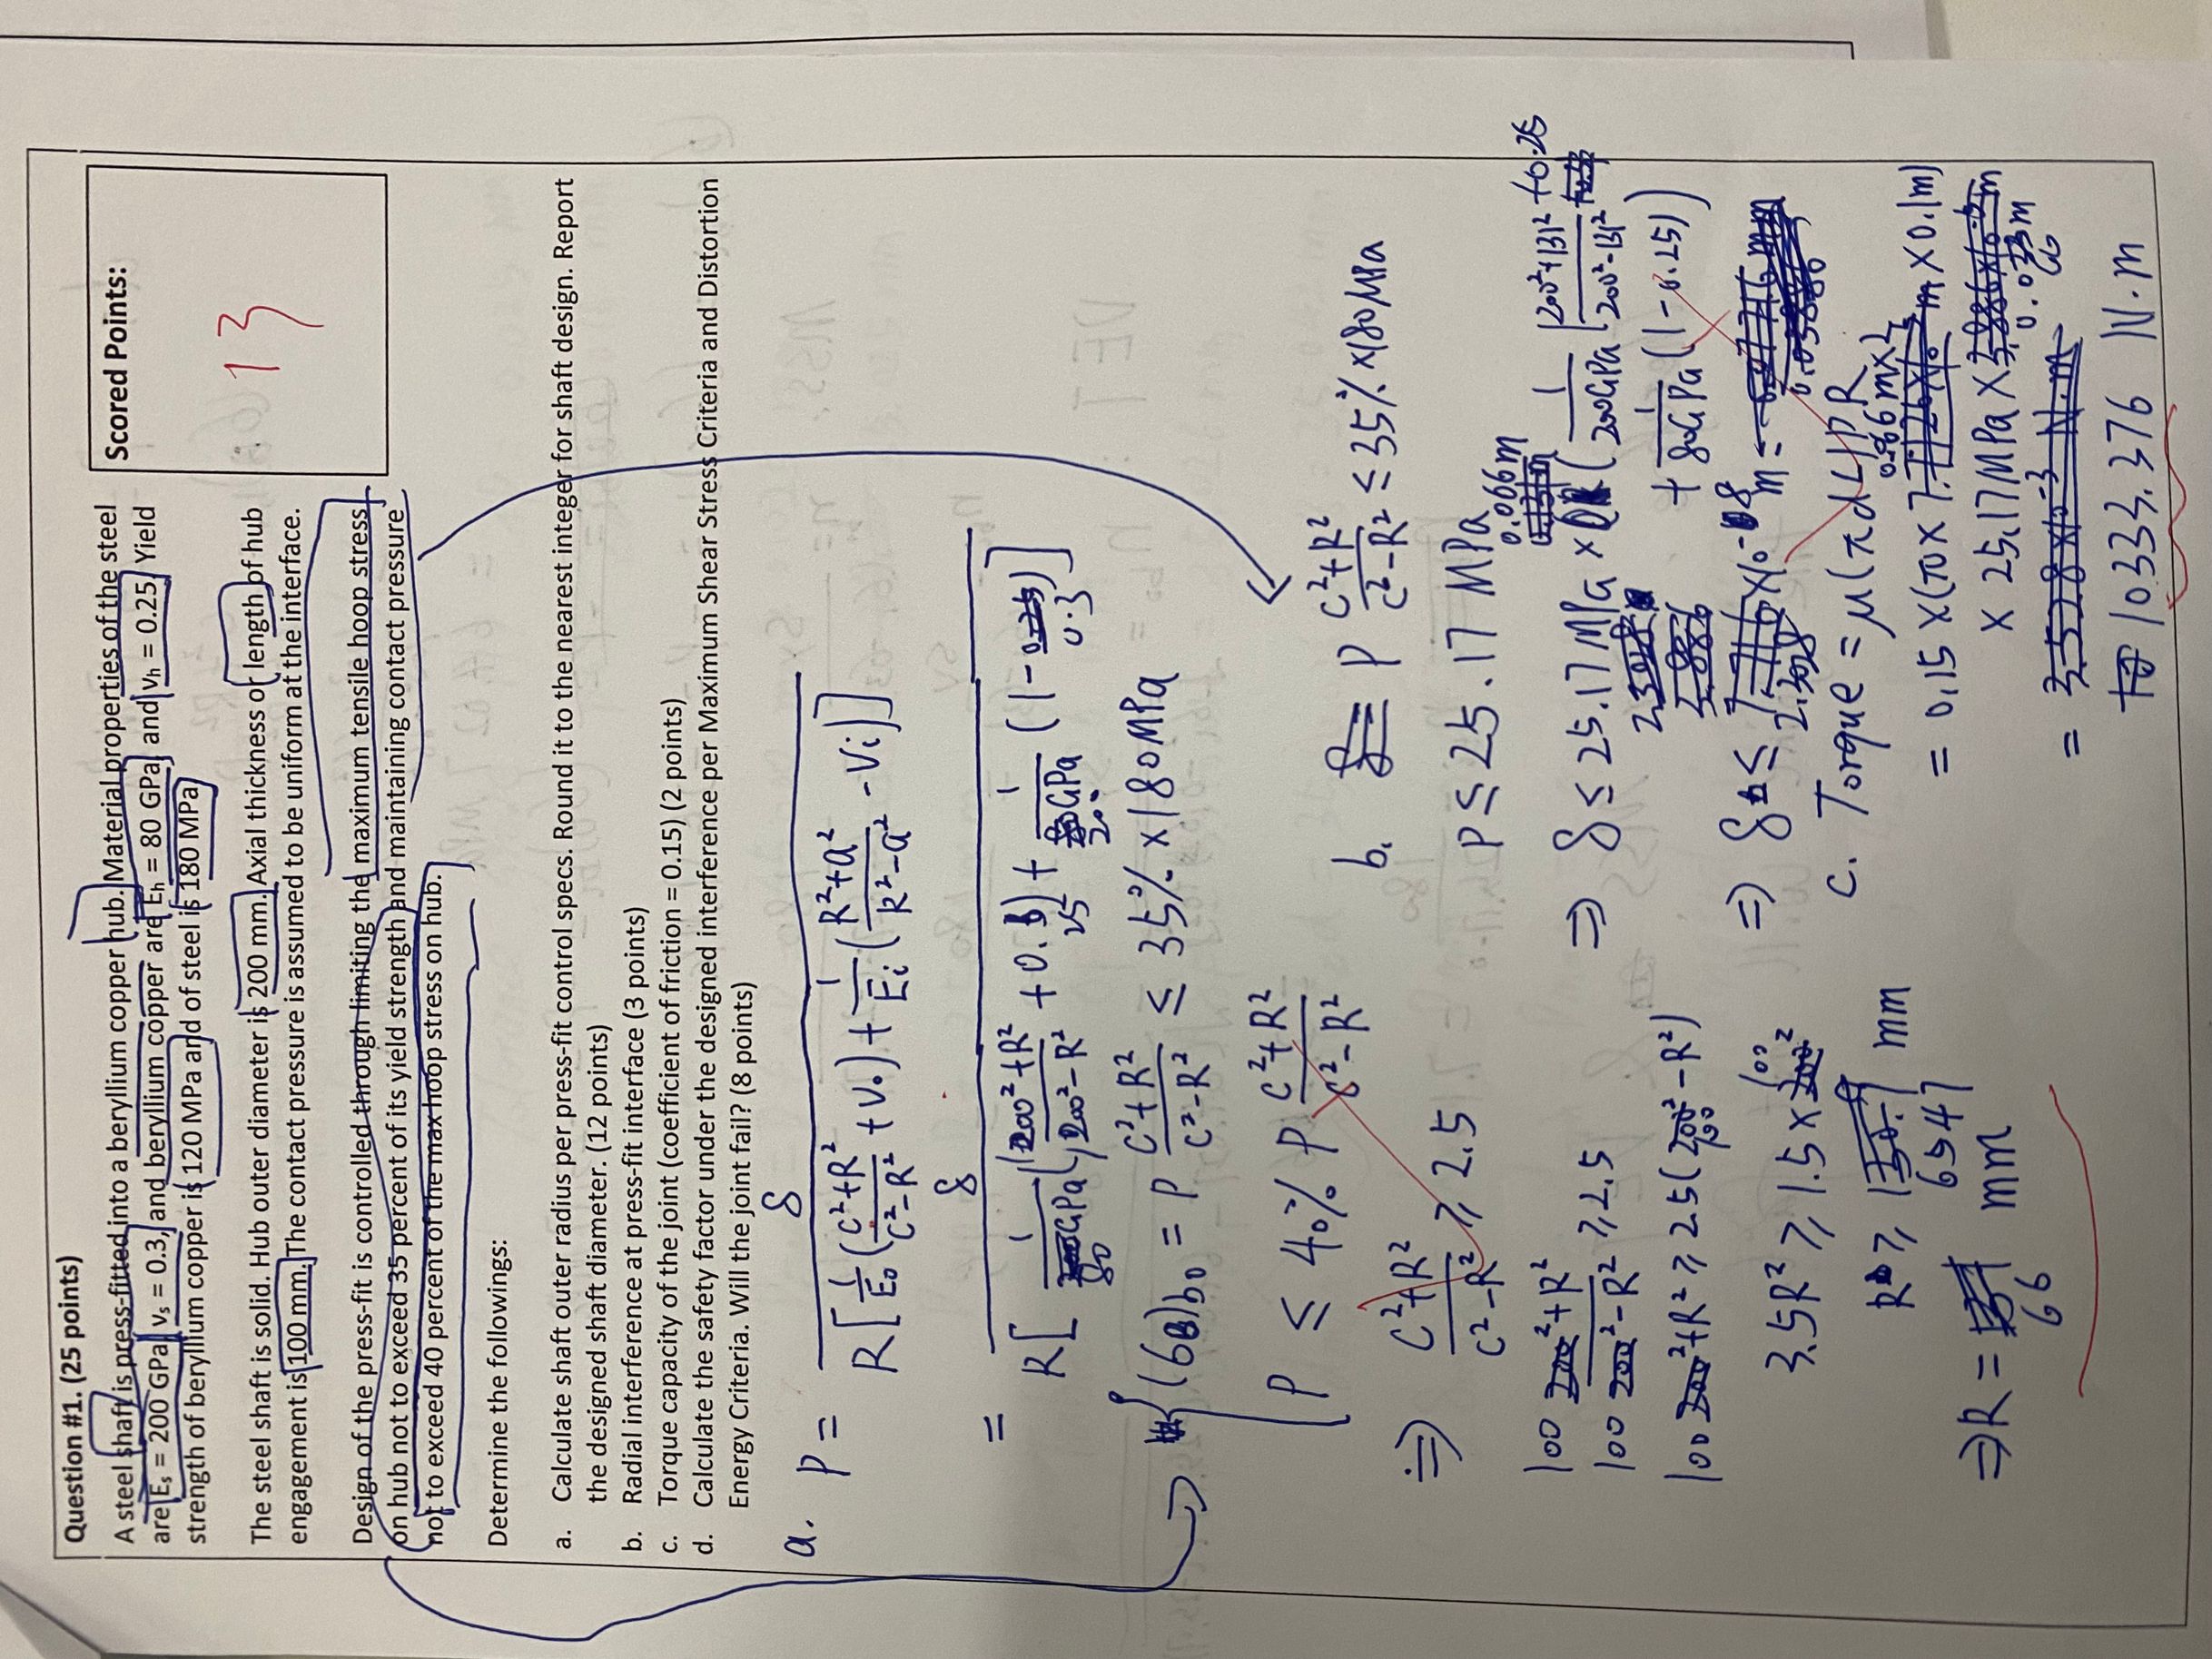 Question #1. (25 points)
A steel shaft is press-fitted into a beryllium copper hub. Material properties of the steel
are Es = 200 GPa, vs = 0.3, and beryllium copper are Eh = 80 GPa and vh = 0.25. Yield
strength of beryllium copper is 120 MPa and of steel is 180 MPa
The steel shaft is solid. Hub outer diameter is 200 mm. Axial thickness or length of hub
engagement is 100 mm. The contact pressure is assumed to be uniform at the interface.
Design of the press-fit is controlled through limiting the maximum tensile hoop stress
on hub not to exceed 35 percent of its yield strength and maintaining contact pressure
not to exceed 40 percent of the max hoop stress on hub.
Scored Points:
13
Determine the followings:
a. Calculate shaft outer radius per press-fit control specs. Round it to the nearest integer for shaft design. Report
the designed shaft diameter. (12 points)
b. Radial interference at press-fit interface (3 points)
c. Torque capacity of the joint (coefficient of friction = 0.15) (2 points)
d. Calculate the safety factor under the designed interference per Maximum Shear Stress Criteria and Distortion
Energy Criteria. Will the joint fail? (8 points)
a. P = δ / R[1/E₀ (C²+R² / C²-R² + V₀) + 1/Ei (R²+a² / R²-a² - Vi)]
= δ / R[1 / 80 GPa (200²+R² / 200²-R² + 0.25) + 1 / 200 GPa (1 - 0.3)]
(σθ)b₀ = P C²+R² / C²-R² ≤ 35% × 180 MPa
P ≤ 40% P C²+R² / C²-R²
⇒ C²+R² / C²-R² ≥ 2.5
100²+R² / 100²-R² ≥ 2.5
100²+R² ≥ 2.5(100²-R²)
3.5R² ≥ 1.5 × 100²
R ≥ 6547 mm
⇒ R = 66 mm
b. P C²+R² / C²-R² ≤ 35% × 180 MPa
P ≤ 25.17 MPa
⇒ δ ≤ 25.17 MPa × 0.066m (1 / 200GPa (200²+131² / 200²-131² + 0.25
+ 1 / 80GPa (1-0.25))
⇒ δ ≤ 2.3028 × 10⁻⁸ m
c. Torque = μ(πdL)PR
= 0.15 × (π × 0.066 m×2 × 0.1m)
× 25.17MPa × 0.066 m
= 10333.376 N·m